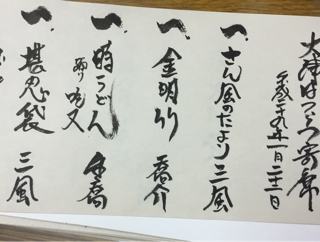 大津はつらつ寄席
平成二十九年一月二十二日
一、さん風のたより 三風
一、金明竹 喬介
一、時うどん 生喬
踊り 吃又
一、堪忍袋 三風